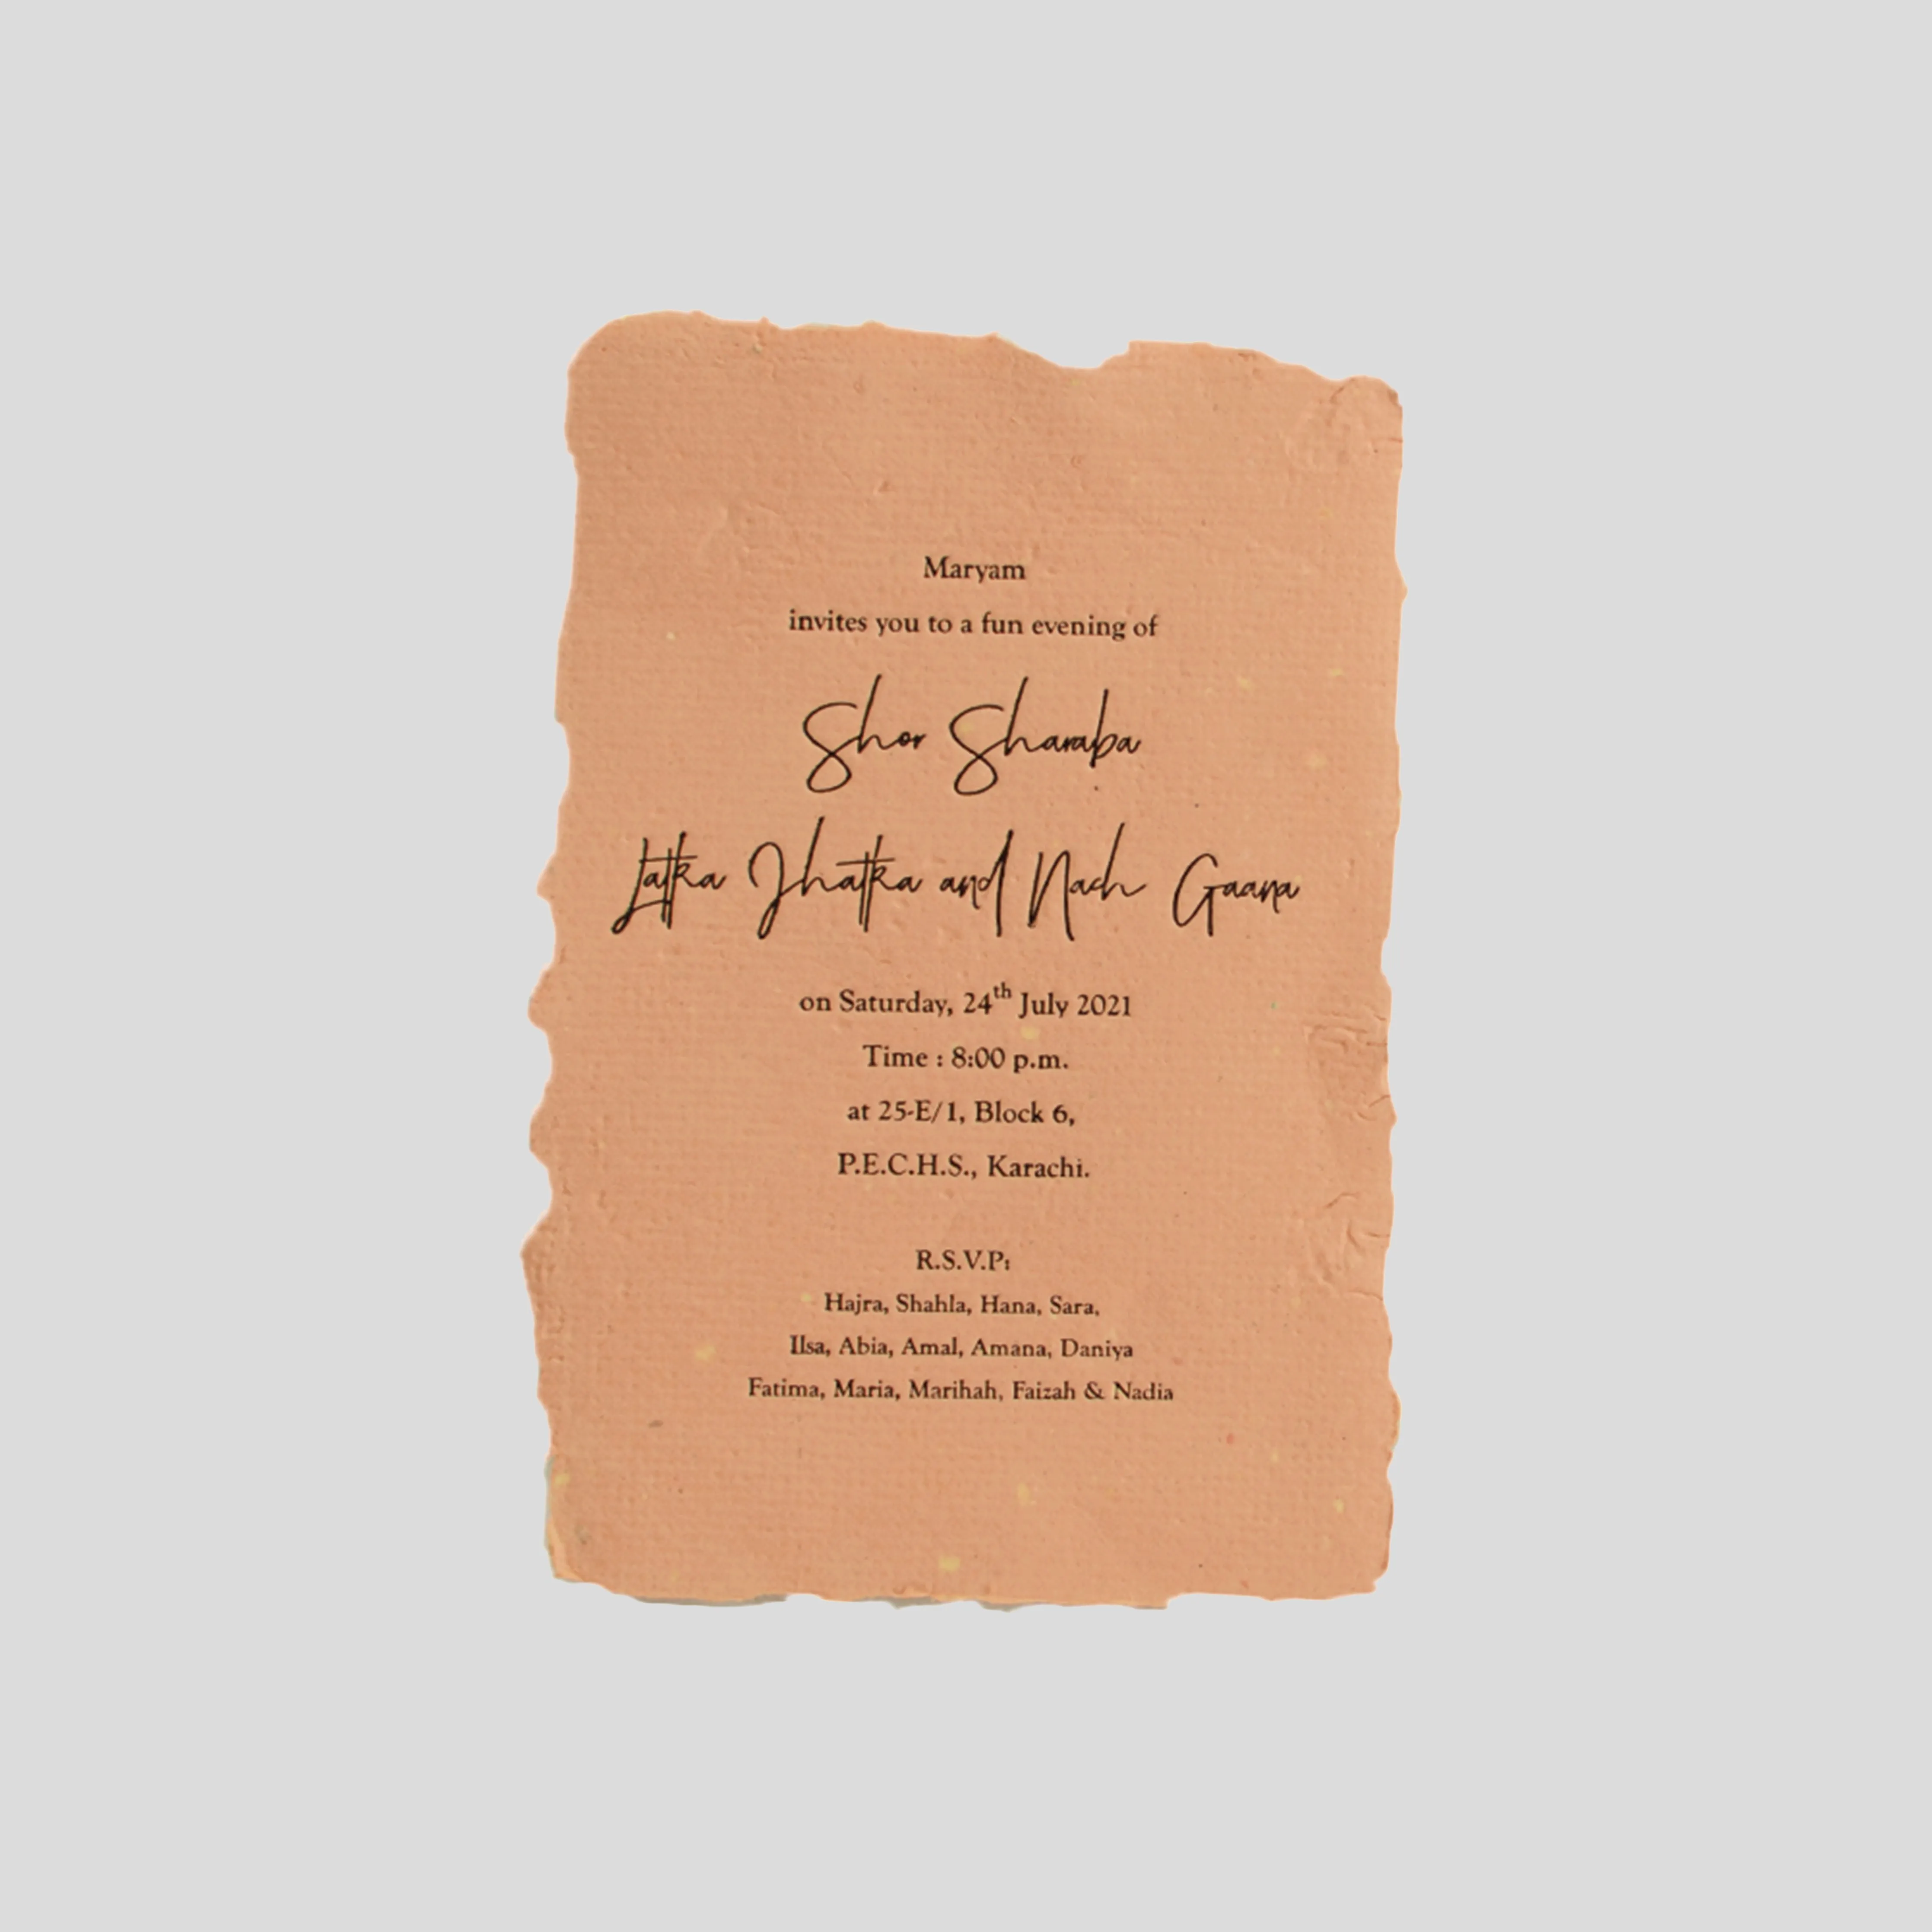 Maryam
invites you to a fun evening of
Shor Sharaba
Latka Jhatka and Nach Gaana
on Saturday, 24th July 2021
Time : 8:00 p.m.
at 25-E/1, Block 6,
P.E.C.H.S., Karachi.
R.S.V.P:
Hajra, Shahla, Hana, Sara,
Ilsa, Abia, Amal, Amana, Daniya
Fatima, Maria, Marihah, Faizah & Nadia